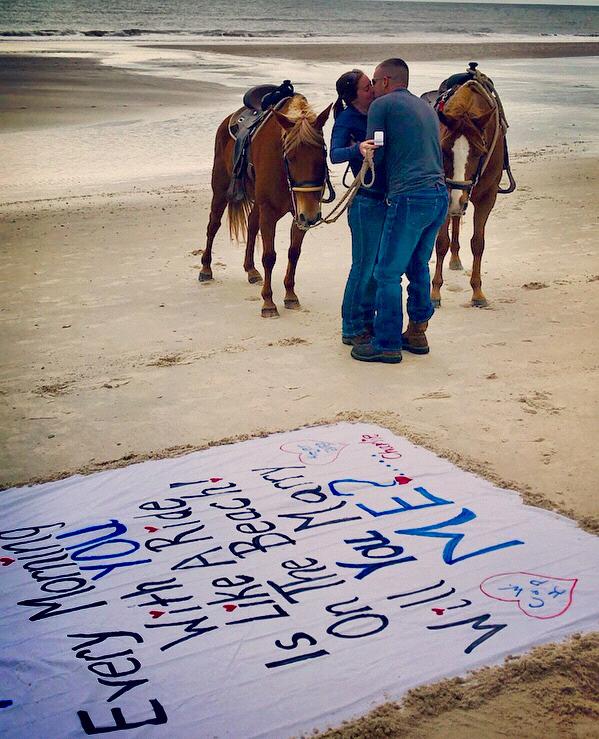 Every Morning
With YOU
Is Like A Ride
On The Beach!
Will You Marry
ME?